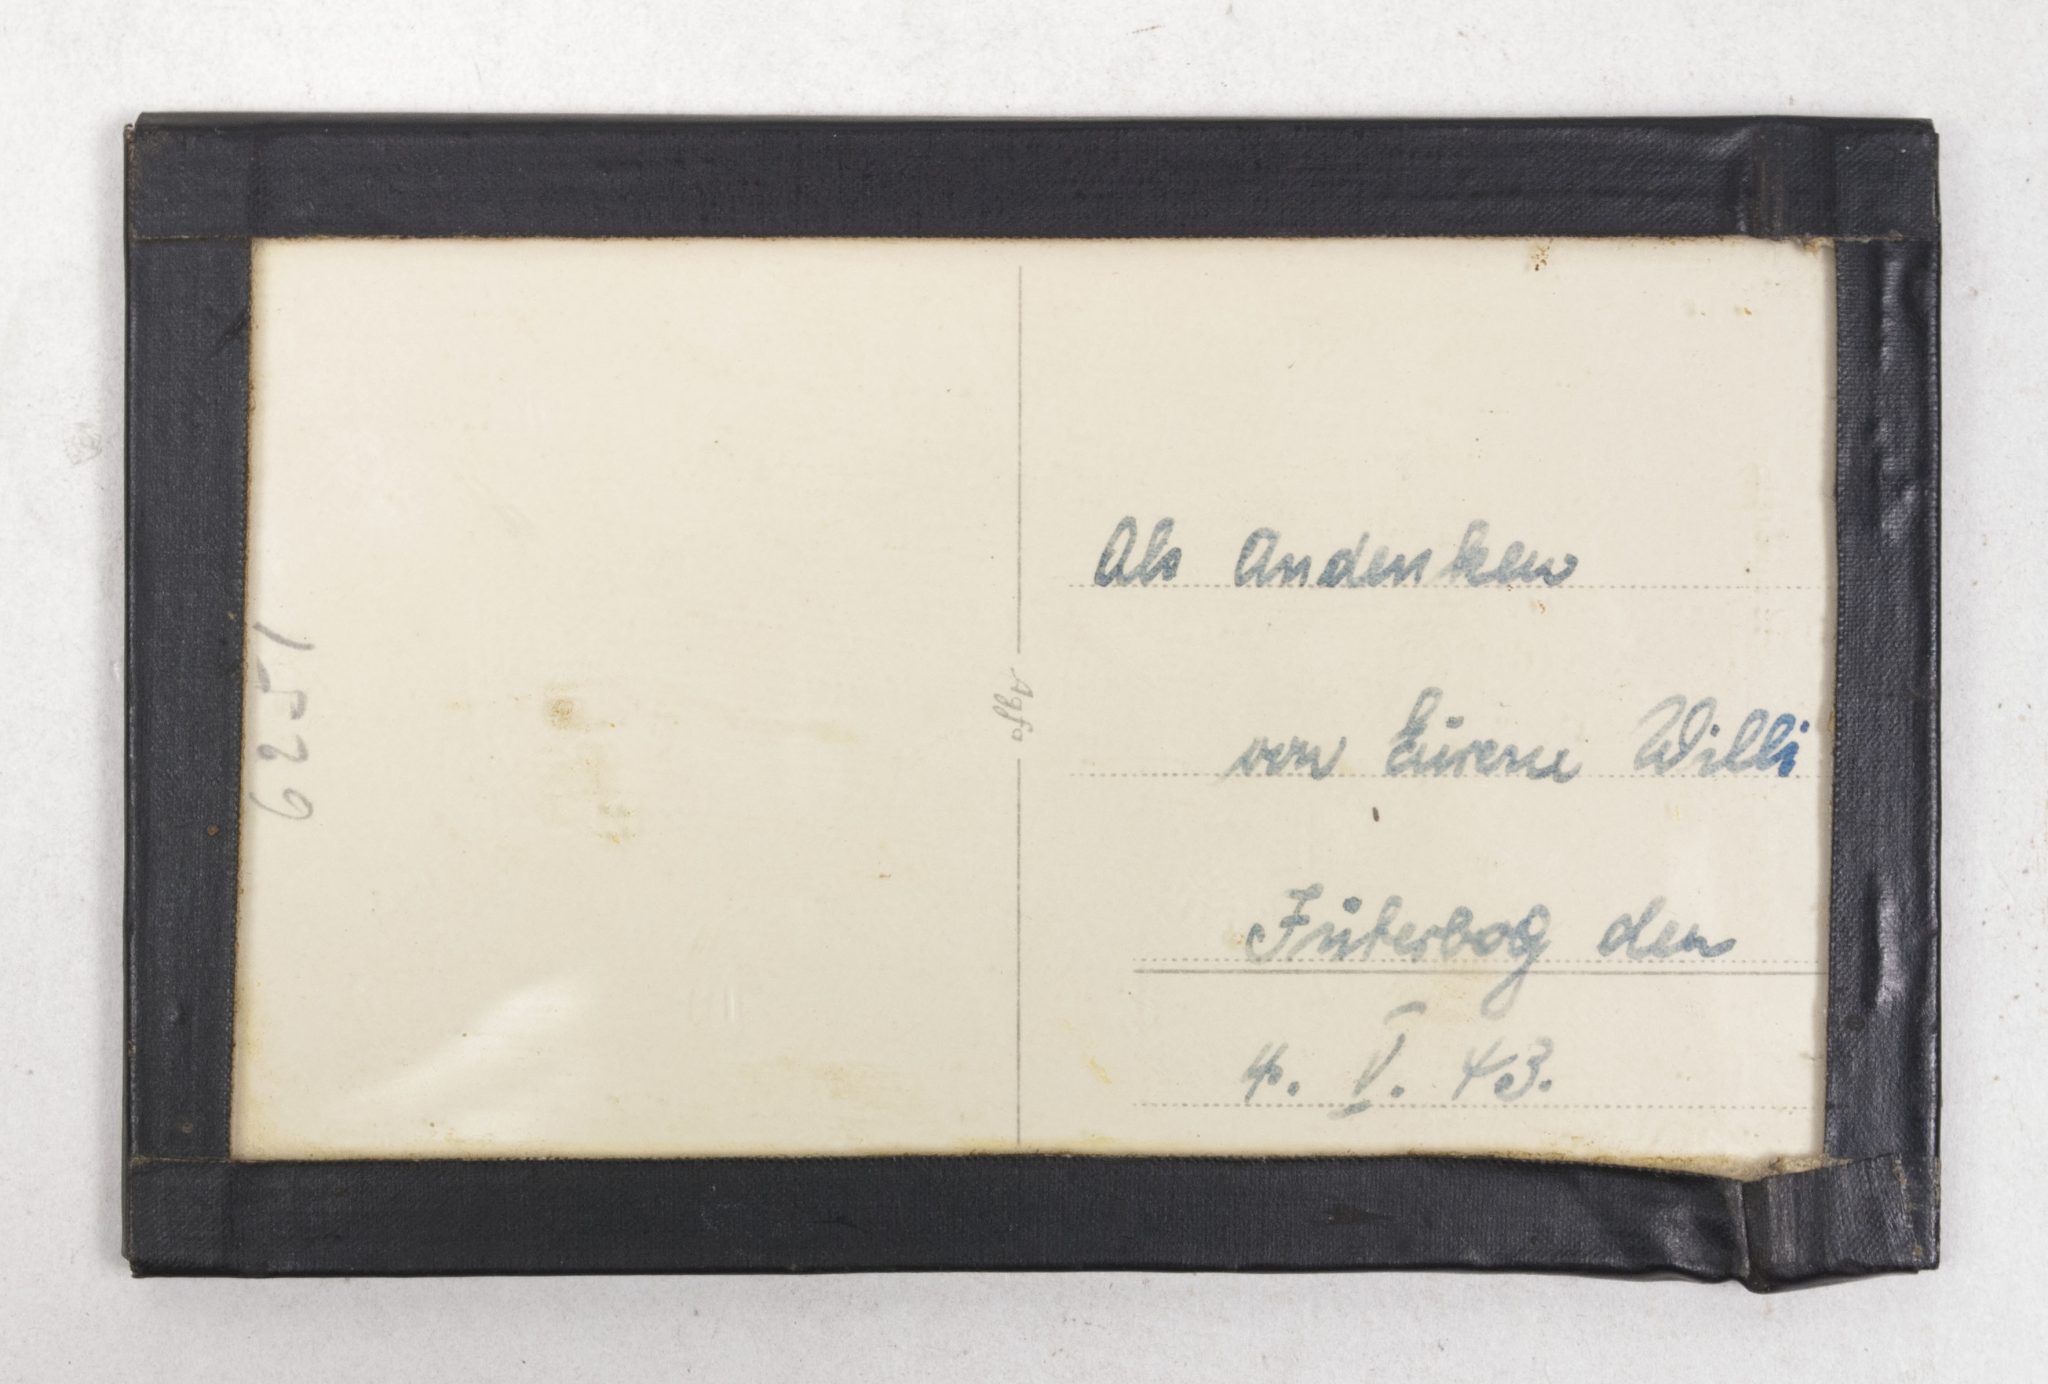 Als Andenken
von Eurem Willi
Jüterbog den
4. V. 43.
Agfa
6251